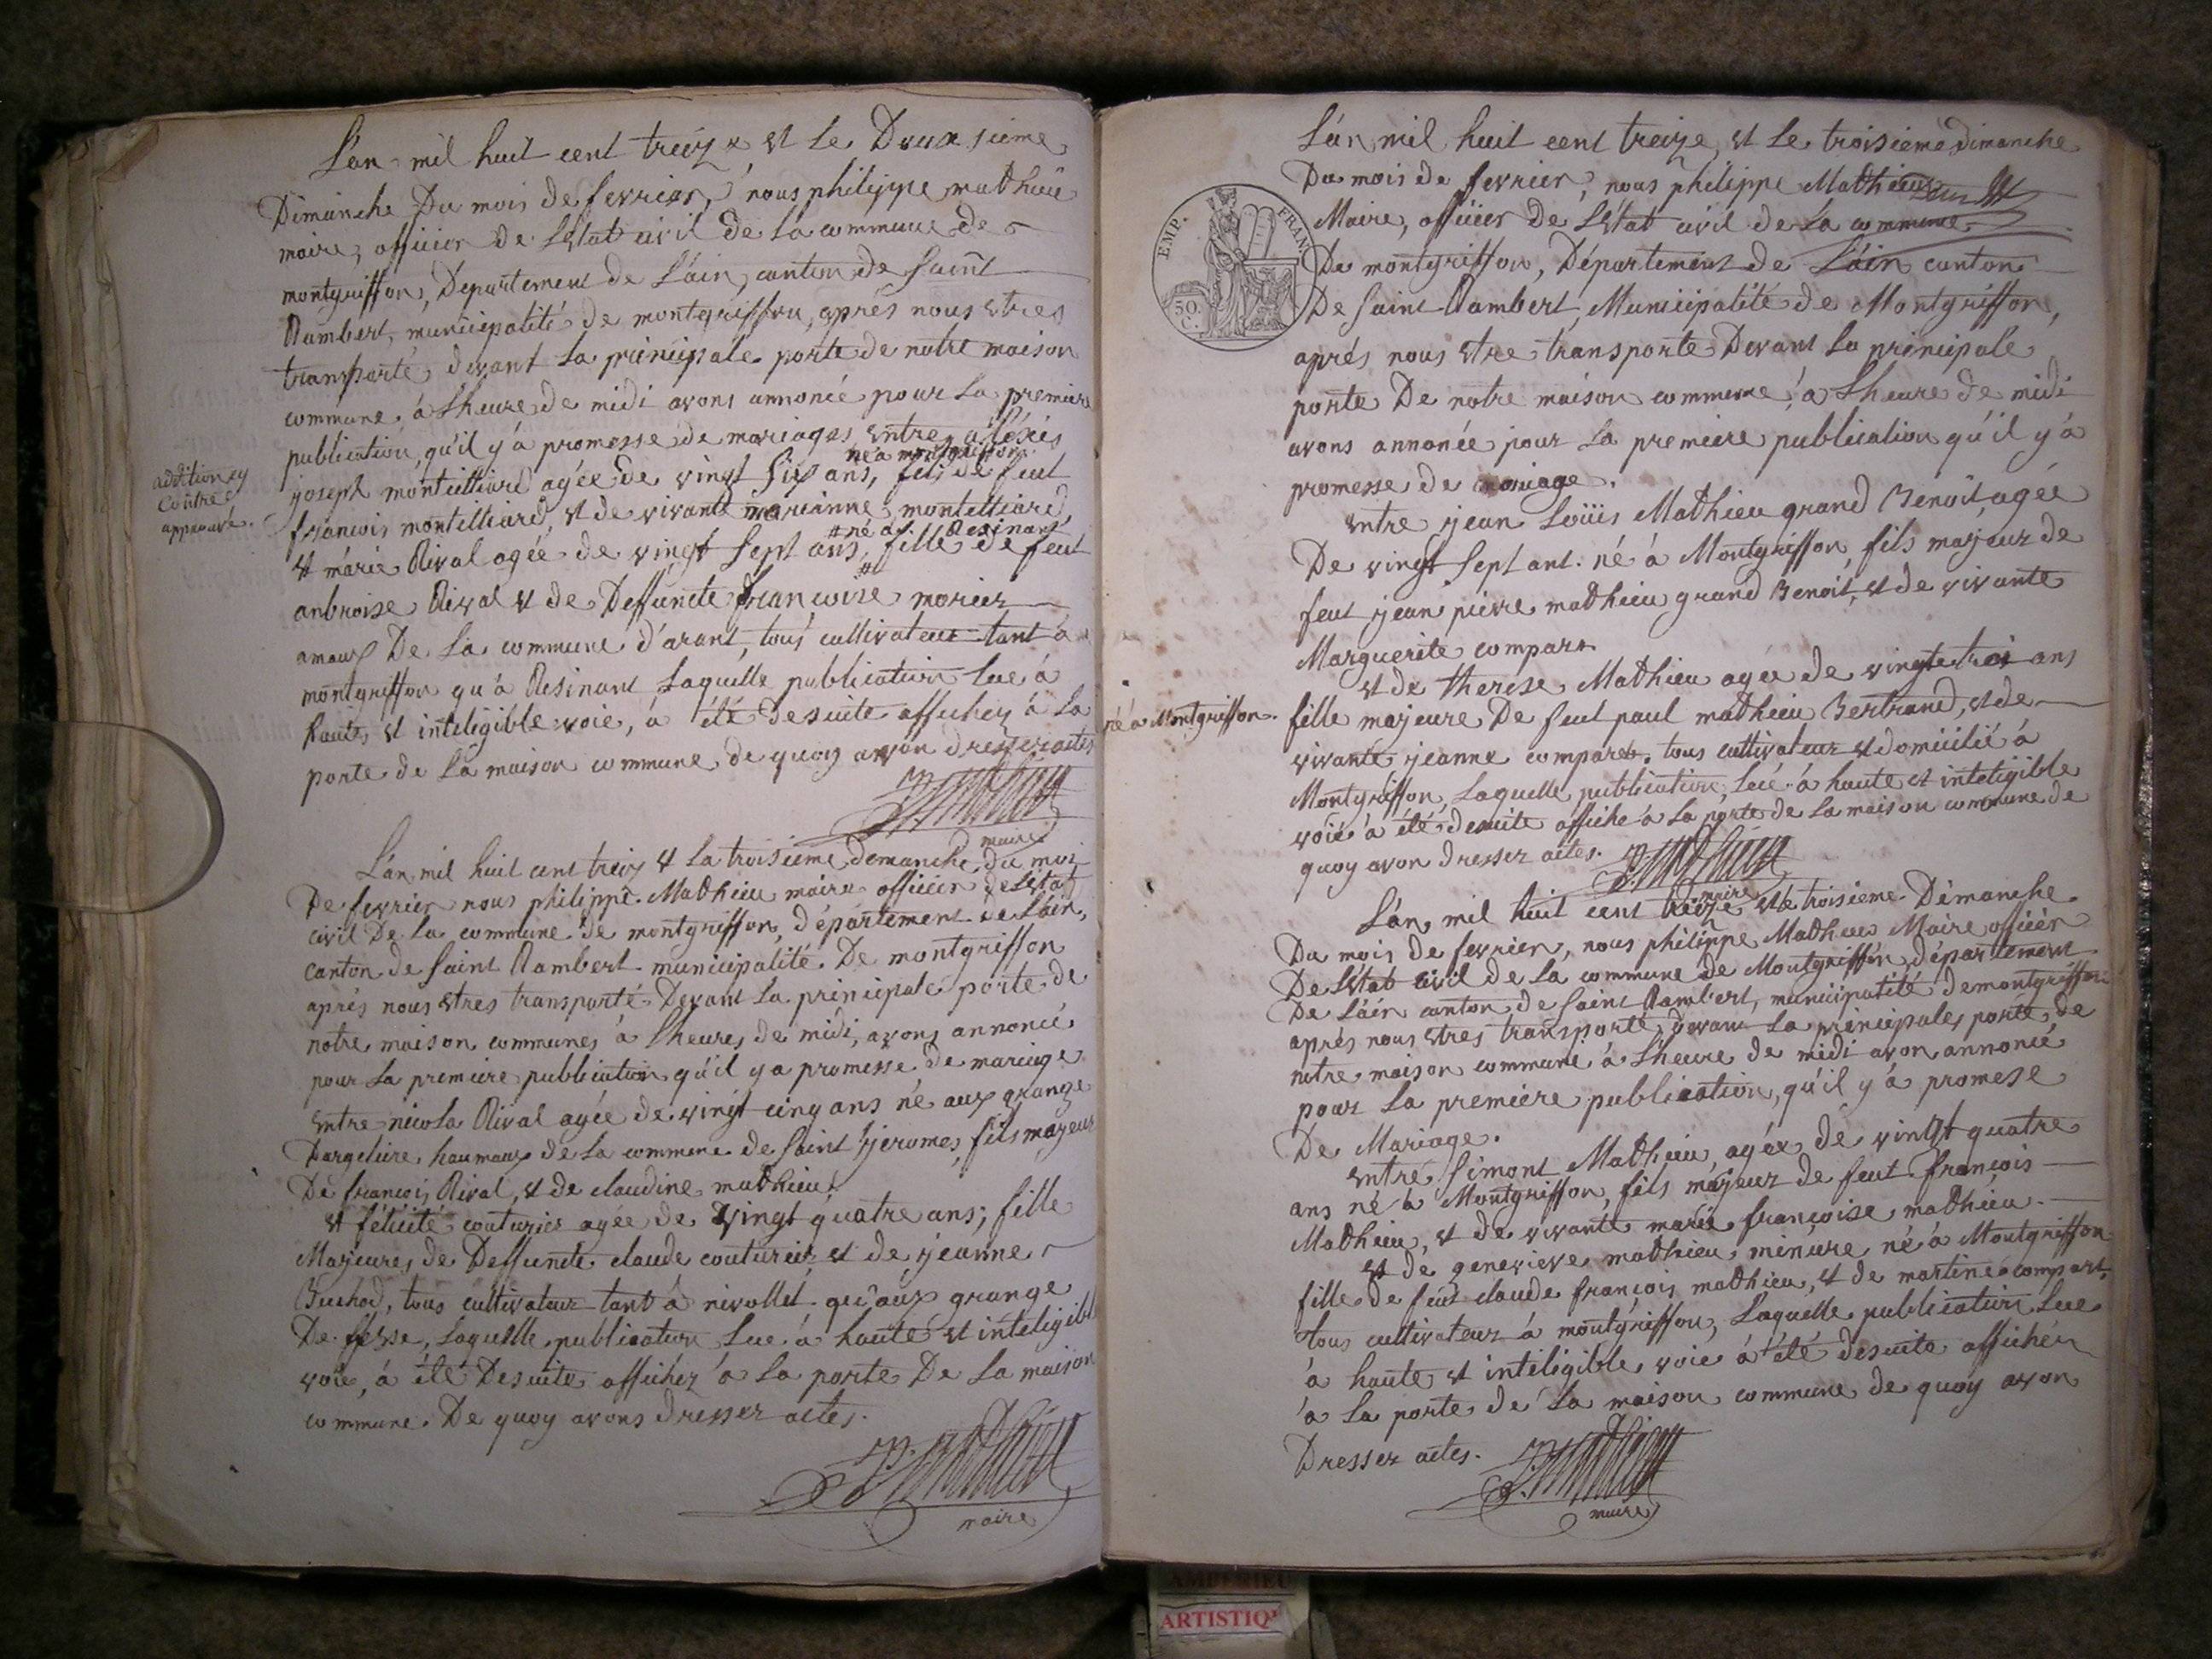 L'an mil huit cent treize et le Deuxsieme
Dimanche Du mois de fevrier, nous philippe mathieu
maire, officier de L'Etat civil de la commune de
montgriffon, Departement de L'ain, canton de Saint
Rambert, municipalité de montgriffon, aprés nous etres
transporté devant la principale porte de notre maison
commune á Lheure de midi avons annoncé pour La premiere
publication, qu'il y'a promesse de mariages entre aléxis
né a montgriffon
joseph montelliard agée de vingt six ans, fils de feut
addition cy
contre
approuvé.
francois montelliard, et de vivante marianne montelliard,
né a Resinant
et márie Rival agée de vingt Sept ans, fille de feut
anbroise Rival et de Deffuncte francoise morier
amaux De La commune d'arant, tous cultivateur tant á
montgriffon qu'á Resinant Laquelle publication Lue á
haute et inteligible voie, á été desuite afficher á La
porte de La maison commune de quoy avon dresser actes
P. mathieu
maire
L'an mil huit cent treiz et La troisieme demanche du moi
De fevrier nous philippe Mathieu maire officier de L'Etat
civil De La commune de montgriffon, département de L'ain,
canton de Saint Rambert municipalité De montgriffon
aprés nous etres transporté Devant La principale porte de
notre maison communes á Lheures de midi, avons annoncé
pour La premiere publication qu'il y a promesse de mariage
entre nicola Rival agée de vingt cinq ans né aux grange
Dargeliere haumaux de La commune de Saint jeromes, fils majeur
De francois Rival, et de claudine mathieu
et félicité couturier agée de vingt quatre ans, fille
Majeures de Deffuncte claude couturier et de jeanne
Buchod, tous cultivateur tant á nivollet qu'aux grange
De fesse, Laquelle publication Lue á haute et inteligible
voie, á été Desuite afficher á La porte De La maison
commune. De quoy avons dresser actes.
P. mathieu
maire
EMP. FRAN.
50.
C.
L'án mil huit cent treize, et Le troisieme dimanche
Du mois de fevrier, nous philippe Mathieu
Maire, officier De L'Etat civil de La commune
De montgriffon, Département de L'áin canton
De Saint Rambert, Municipalité de Montgriffon,
aprés nous etre transporte Devant La principale
porte De notre maison commune, á Lheure de midi
avons annoncée pour La premiere publication qu'il y'á
promesse de mariage.
entre jean Loüis Mathieu grand Benoit, agée
De vingt Sept ant. né á Montgriffon, fils majeur de
feut jean pierre mathieu grand Benoit, et de vivante
Marguerite compare
et de therese Mathieu agée de vingt trois ans
né á Montgriffon.
fille majeure De feut paul mathieu Bertrand, et de
vivante jeanne compare. tous cultivateur et domicilié á
Montgriffon, Laquelle publication, Lue á haute et inteligible
voie á été desuite affiche á La porte de La maison commune de
quoy avon dresser actes.
P. mathieu
maire
L'án mil huit cent treize et le troisieme Dimanche
Du mois de fevrier, nous philippe Mathieu Maire officier
De L'Etat civil de La commune De Montgriffon, département
De L'áin canton de Saint Rambert, municipalité demontgriffon
aprés nous etres transporté devant La principales porte de
notre maison commune á L'heure de midi avon annoncé
pour La premiere publication, qu'il y'á promese
De Mariage.
entre Simont Mathieu, agée de vingt quatre
ans né á Montgriffon, fils majeur de feut françois
Mathieu, et de vivante marie françoise mathieu.
et de genevieve mathieu, mineure né á Montgriffon
fille de feut claude françois mathieu, et de martine compart,
tous cultivateur á montgriffon, Laquelle publication Lue
á haute et inteligible voie á été desuite afficher
á La porte de La maison commune de quoy avon
Dresser actes.
P. mathieu
maire
ARTISTIQ